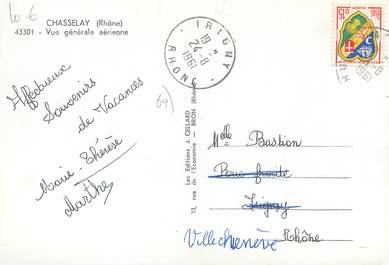 10-6
CHASSELAY (Rhône)
43301 - Vue générale aérienne
IRIGNY
19 H
24-8
1961
RHONE
Affectueux
Souvenirs
de Vacances
Marie-Thérèse
Marthe
69)
Les Editions J. CELLARD
13, rue de l'Economie - BRON (Rhône)
Melle Bastion
Irigny
Villechenève
Rhône